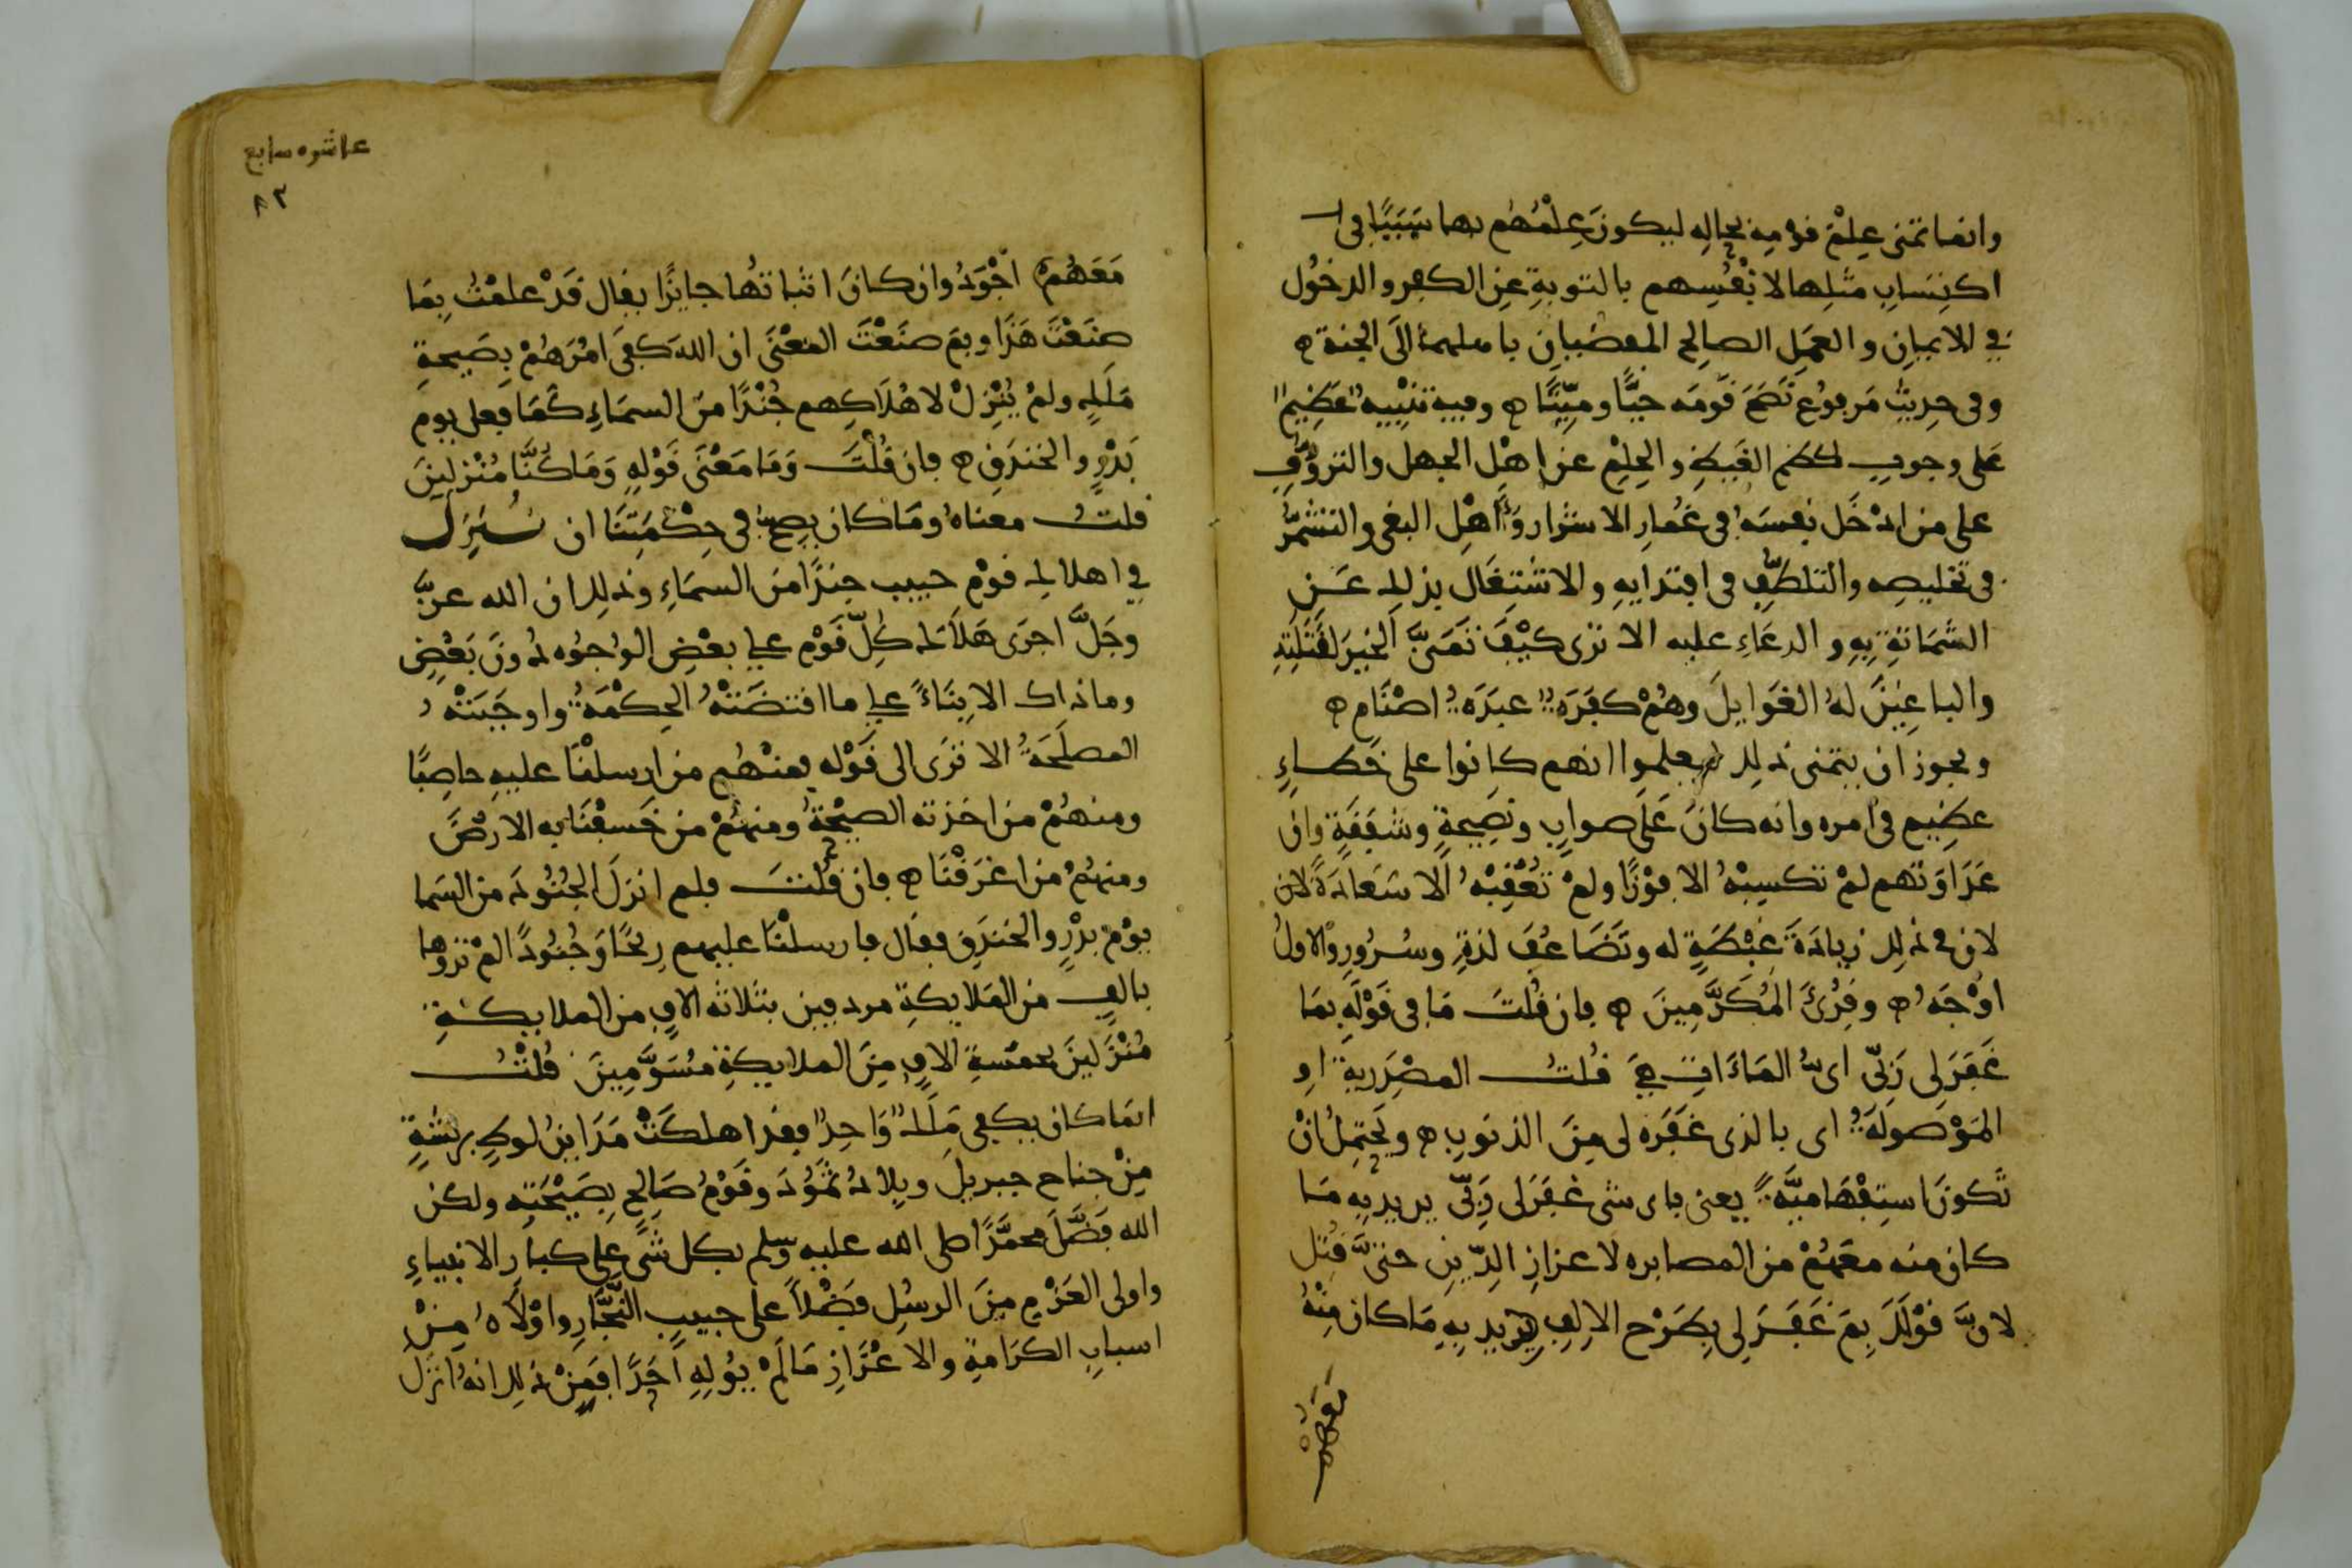 وانما تمنى علم قومه بحاله ليكون علمهم بها سببا فى ا
اكتساب مثلها لانفسهم بالتوبة عن الكفر والدخول
في الايمان والعمل الصالح المفضيان باهلهما الى الجنة ه
وفى حديث مرفوع نصح قومه حيا وميتا ه وفيه تنبيه عظيم
على وجوب كظم الغيظ والحلم عن اهل الجهل والتروف
على من ادخل نفسه فى غمار الاشرار واهل البغى والتشمر
فى تخليصه والتلطف فى افتدايه والاشتغال بذلك عن
الشماتة به والدعاء عليه الا ترى كيف تمنى الخير لقتلته
والباغين له الغوايل وهم كفرة عبدة اصنام ه
ويجوز ان يتمنى ذلك ليعلموا انهم كانوا على خطاء
عظيم فى امره وانه كان على صواب ونصيحة وشفقة وان
عداوتهم لم تكسبه الا فوزا ولم تعقبه الا سعادة لان
لان في ذلك زيادة غبطة له وتضاعف لذة وسرور والاول
اوجه ه وقرئ المكرمين ه فان قلت ما فى قوله بما
غفر لى ربى اى الماءات هي قلت المصدرية او
الموصولة اى بالذى غفره لى من الذنوب ه ويحتمل ان
تكون استفهامية يعنى باى شى غفر لى ربى يريد به ما
كان منه معهم من المصابره لاعزاز الدين حتى قتل
لان قولك بم غفر لى بطرح الالف يريد به ما كان منه
معهم
عاشره سابع
٨٣
معهم اجود وان كان اثباتها جايزا يقال قد علمت بما
صنعت هذا وبم صنعت المعنى ان الله كفى امرهم بصيحة
ملك ولم ينزل لاهلاكهم جندا من السماء كما فعل يوم
بدر والخندق ه فان قلت وما معنى قوله وما كنا منزلين
قلت معناه وما كان يصح فى حكمتنا ان ننزل
في اهلاك قوم حبيب جندا من السماء وذلك ان الله عز
وجل اجرى هلاك كل قوم على بعض الوجوه دون بعض
وما ذاك الا بناء على ما اقتضته الحكمة واوجبته
المصلحة الا ترى الى قوله فمنهم من ارسلنا عليه حاصبا
ومنهم من اخذته الصيحة ومنهم من خسفنا به الارض
ومنهم من اغرقنا ه فان قلت فلم انزل الجنود من السما
يوم بدر والخندق فقال فارسلنا عليهم ريحا وجنودا لم تروها
بالف من الملايكة مردفين بثلاثه الاف من الملايكة
منزلين بخمسة الاف من الملايكة مسومين قلت
انما كان يكفى ملك واحد فقد اهلكت مداين لوط بريشة
من جناح جبريل وبلاد ثمود وقوم صالح بصيحته ولكن
الله فضل محمدا صلى الله عليه وسلم بكل شى على كبار الانبياء
واولى العزم من الرسل فضلا على حبيب النجار واولاه من
اسباب الكرامة والاعزاز ما لم يوله احدا فمن ذلك انه انزل